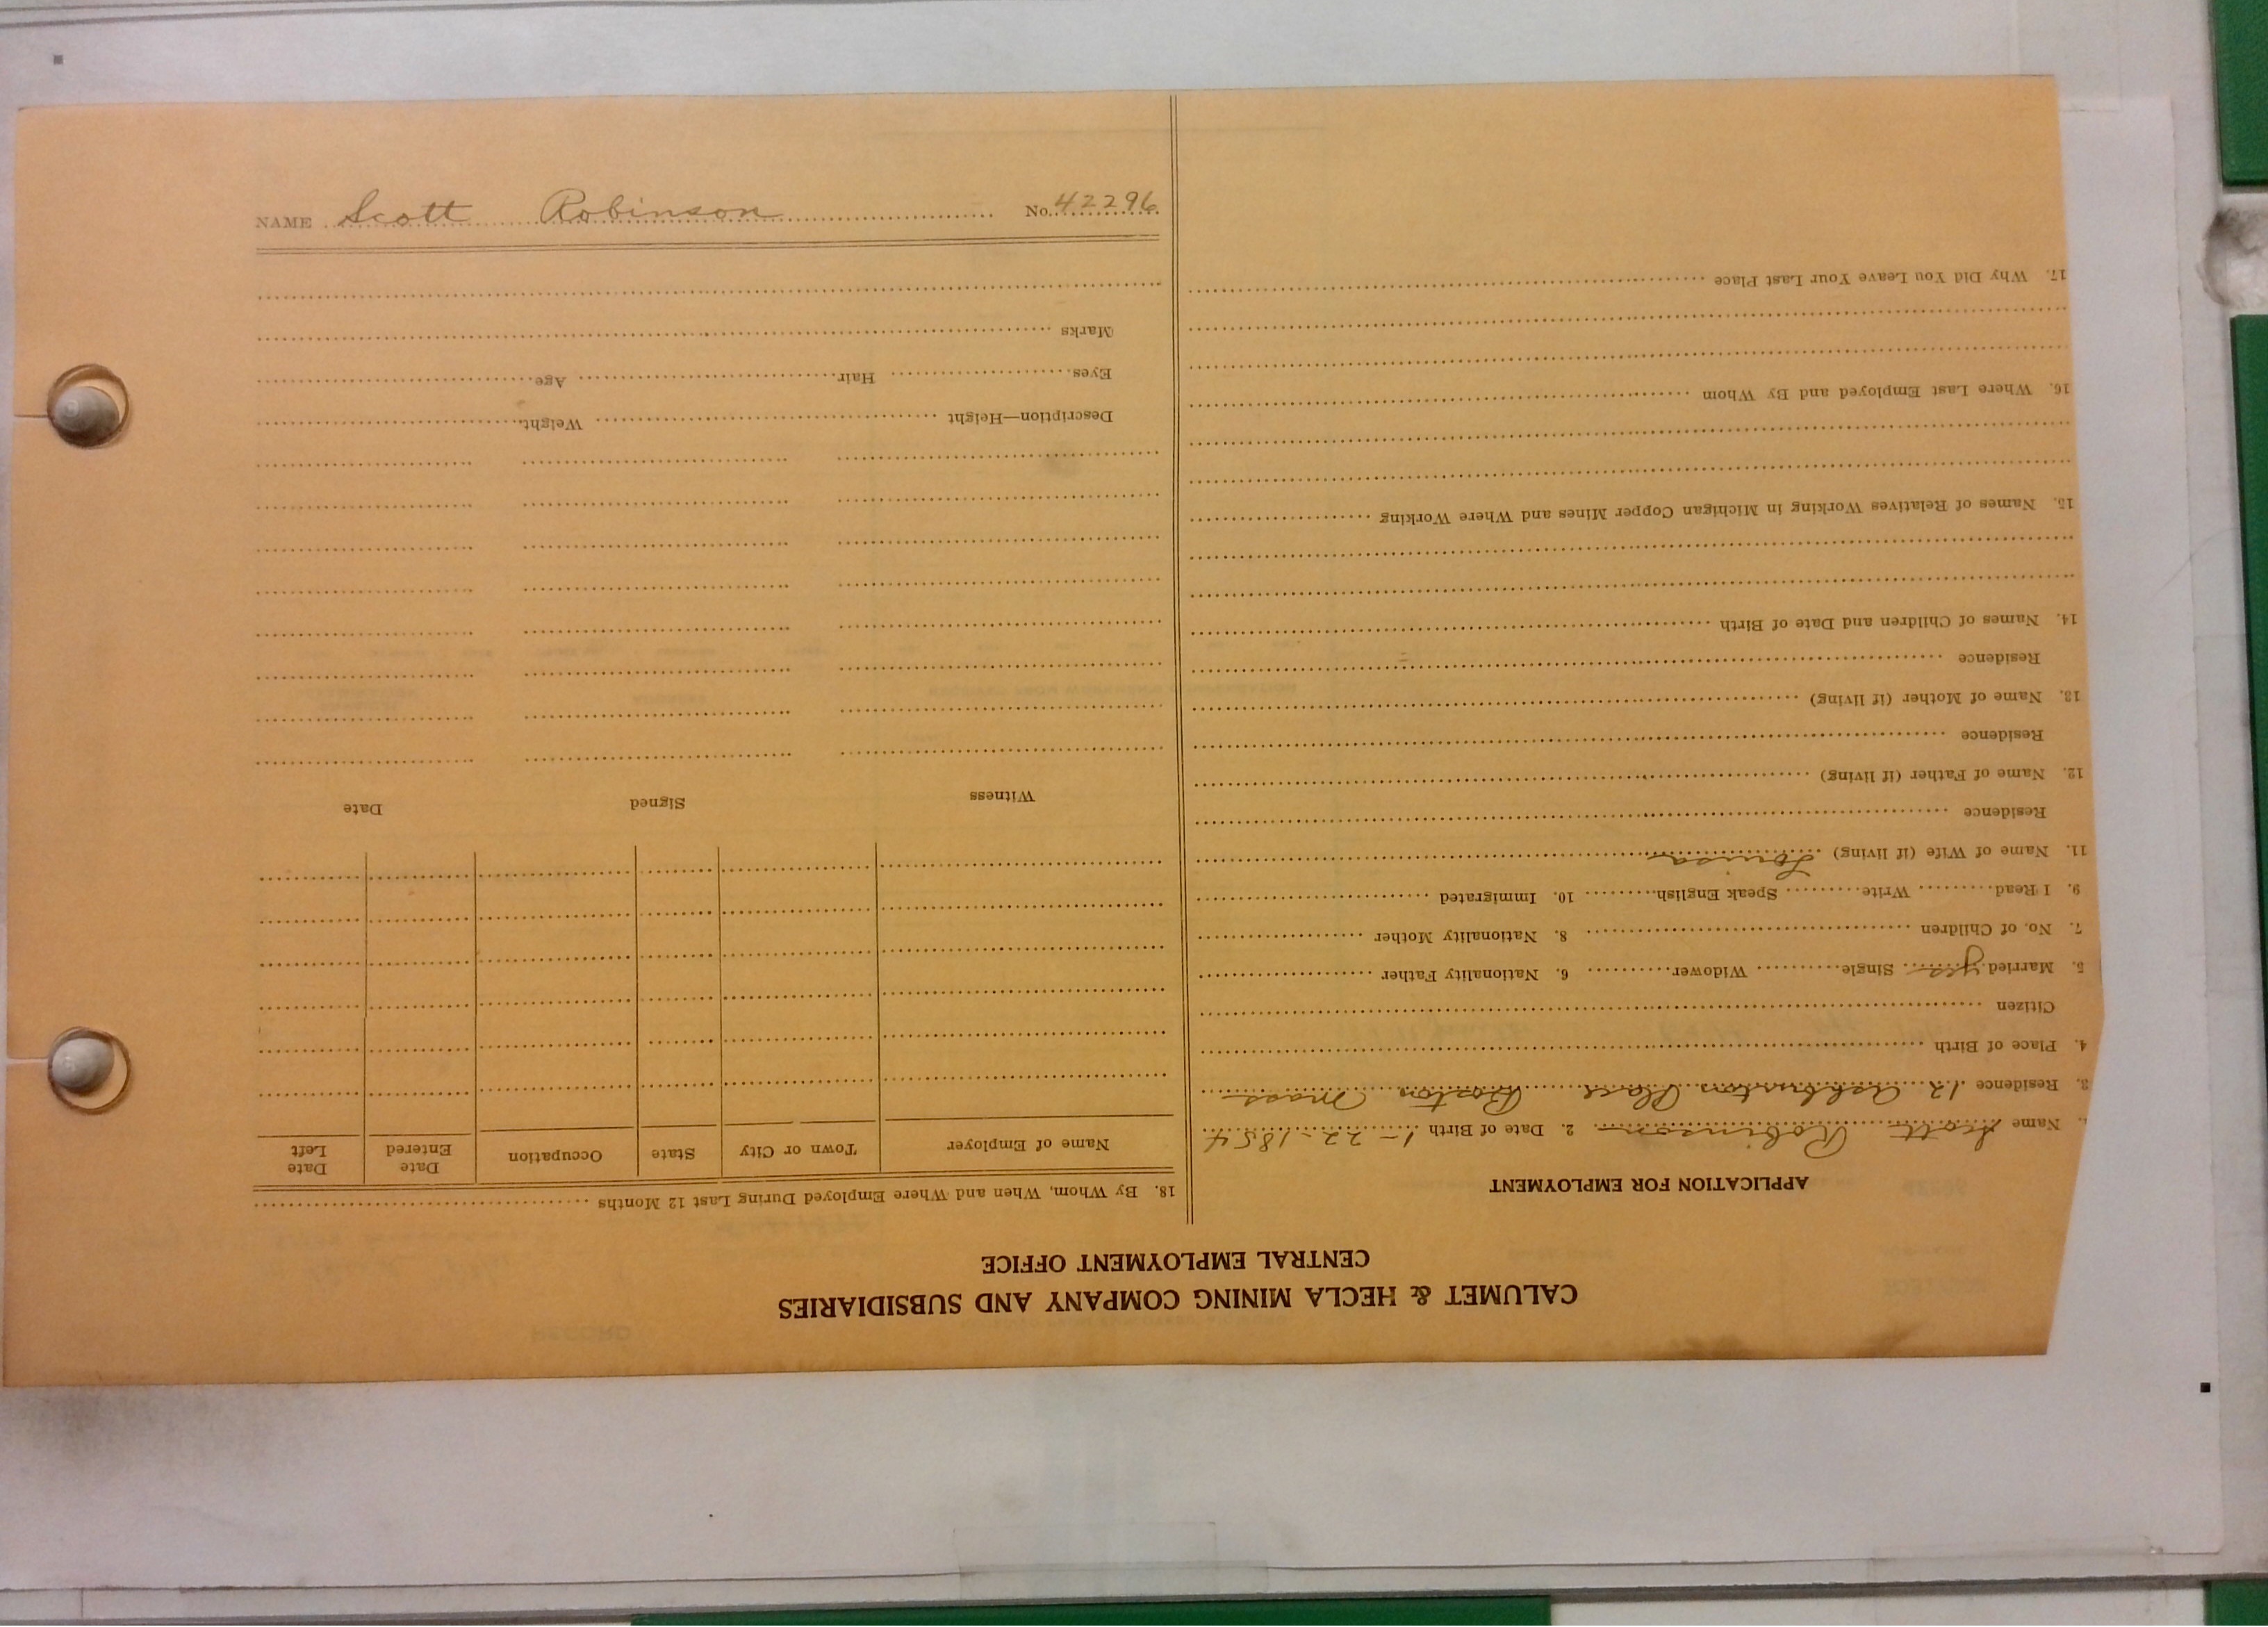 CALUMET & HECLA MINING COMPANY AND SUBSIDIARIES
CENTRAL EMPLOYMENT OFFICE
APPLICATION FOR EMPLOYMENT
Name Scott Robinson 2. Date of Birth 1-22-1854
3. Residence 12 Ashburton Place Boston Mass
4. Place of Birth
Citizen
5. Married yes Single Widower 6. Nationality Father
7. No. of Children 8. Nationality Mother
9. I Read Write Speak English 10. Immigrated
11. Name of Wife (if living) Louisa
Residence
12. Name of Father (if living)
Residence
13. Name of Mother (if living)
Residence
14. Names of Children and Date of Birth
15. Names of Relatives Working in Michigan Copper Mines and Where Working
16. Where Last Employed and By Whom
17. Why Did You Leave Your Last Place
18. By Whom, When and Where Employed During Last 12 Months
Name of Employer Town or City State Occupation Date Entered Date Left
Witness Signed Date
Description—Height Weight
Eyes Hair Age
Marks
NAME Scott Robinson No. 42296